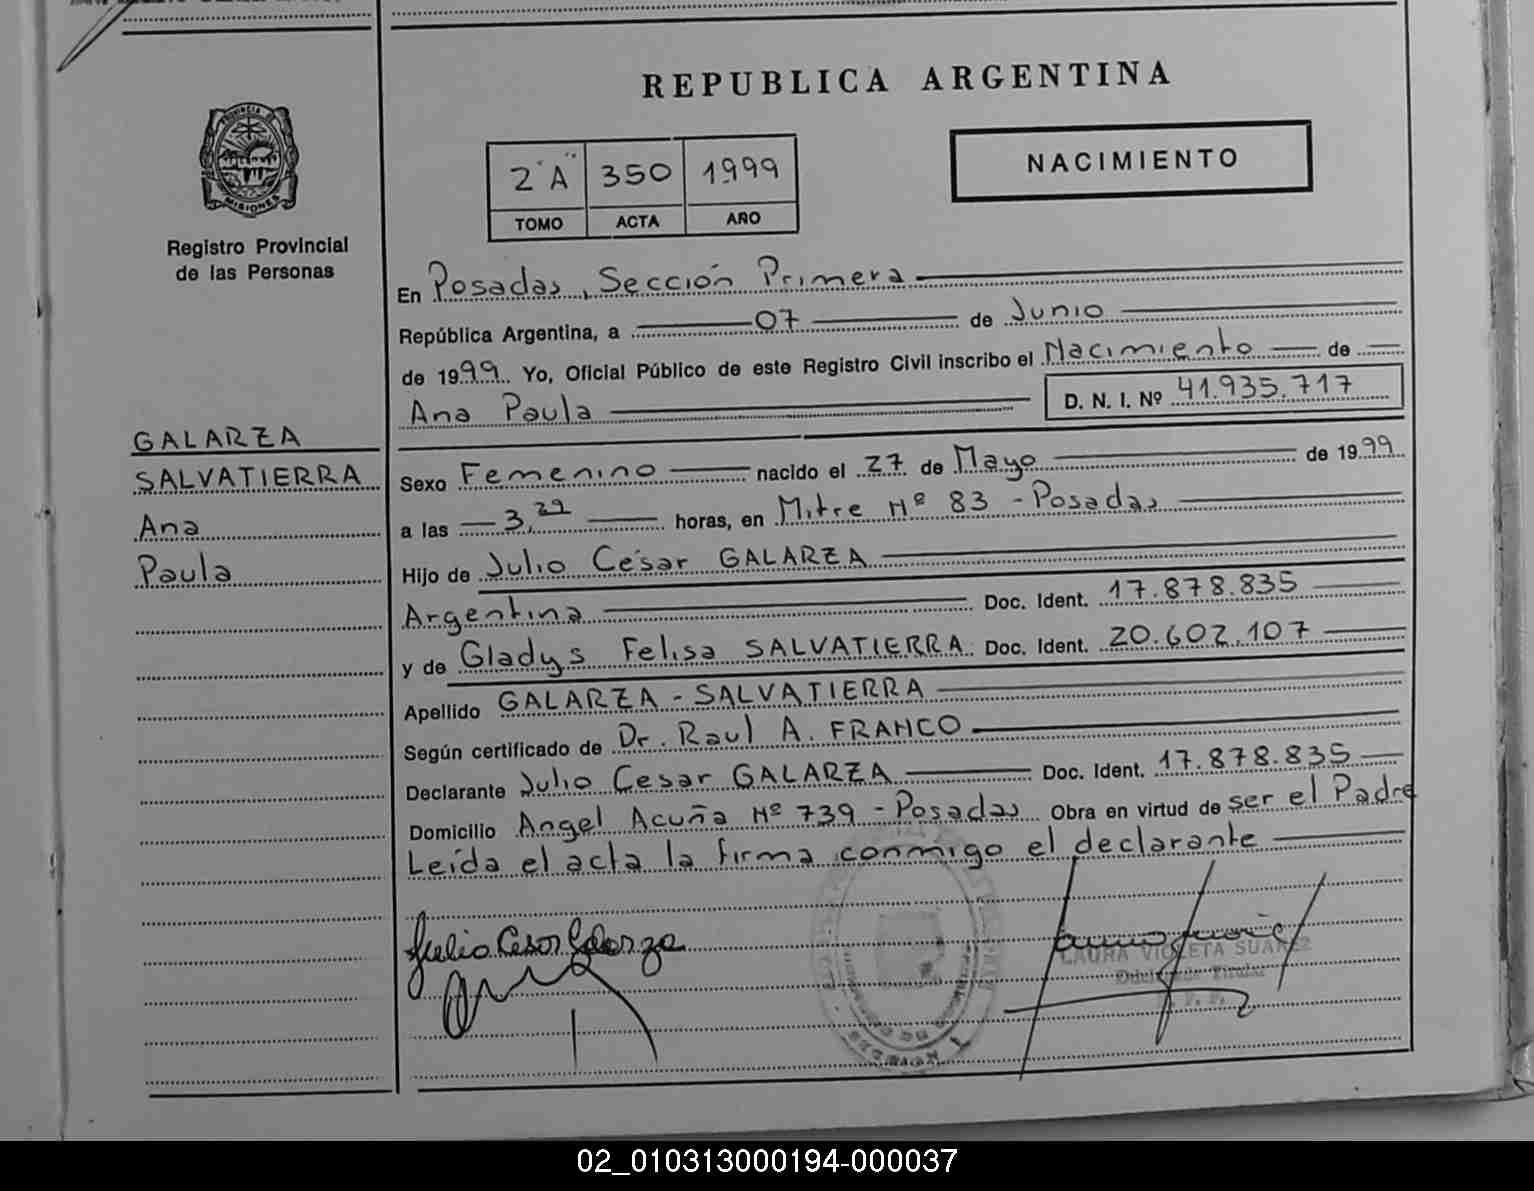 REPUBLICA ARGENTINA
PROVINCIA DE
MISIONES
Registro Provincial
de las Personas
2"A" 350 1999
TOMO ACTA AÑO
NACIMIENTO
En Posadas, Sección Primera
República Argentina, a 07 de Junio
de 1999 Yo, Oficial Público de este Registro Civil inscribo el Nacimiento de
Ana Paula D. N. I. Nº 41.935.717
GALARZA
SALVATIERRA
Ana
Paula
Sexo Femenino nacido el 27 de Mayo de 1999
a las 3,29 horas, en Mitre Nº 83 - Posadas
Hijo de Julio César GALARZA
Argentina Doc. Ident. 17.878.835
y de Gladys Felisa SALVATIERRA Doc. Ident. 20.602.107
Apellido GALARZA - SALVATIERRA
Según certificado de Dr. Raul A. FRANCO
Declarante Julio Cesar GALARZA Doc. Ident. 17.878.835
Domicilio Angel Acuña Nº 739 - Posadas Obra en virtud de ser el Padre
Leída el acta la firma conmigo el declarante
Julio Cesar Galarza
LAURA VIOLETA SUAREZ
Titular
02_010313000194-000037